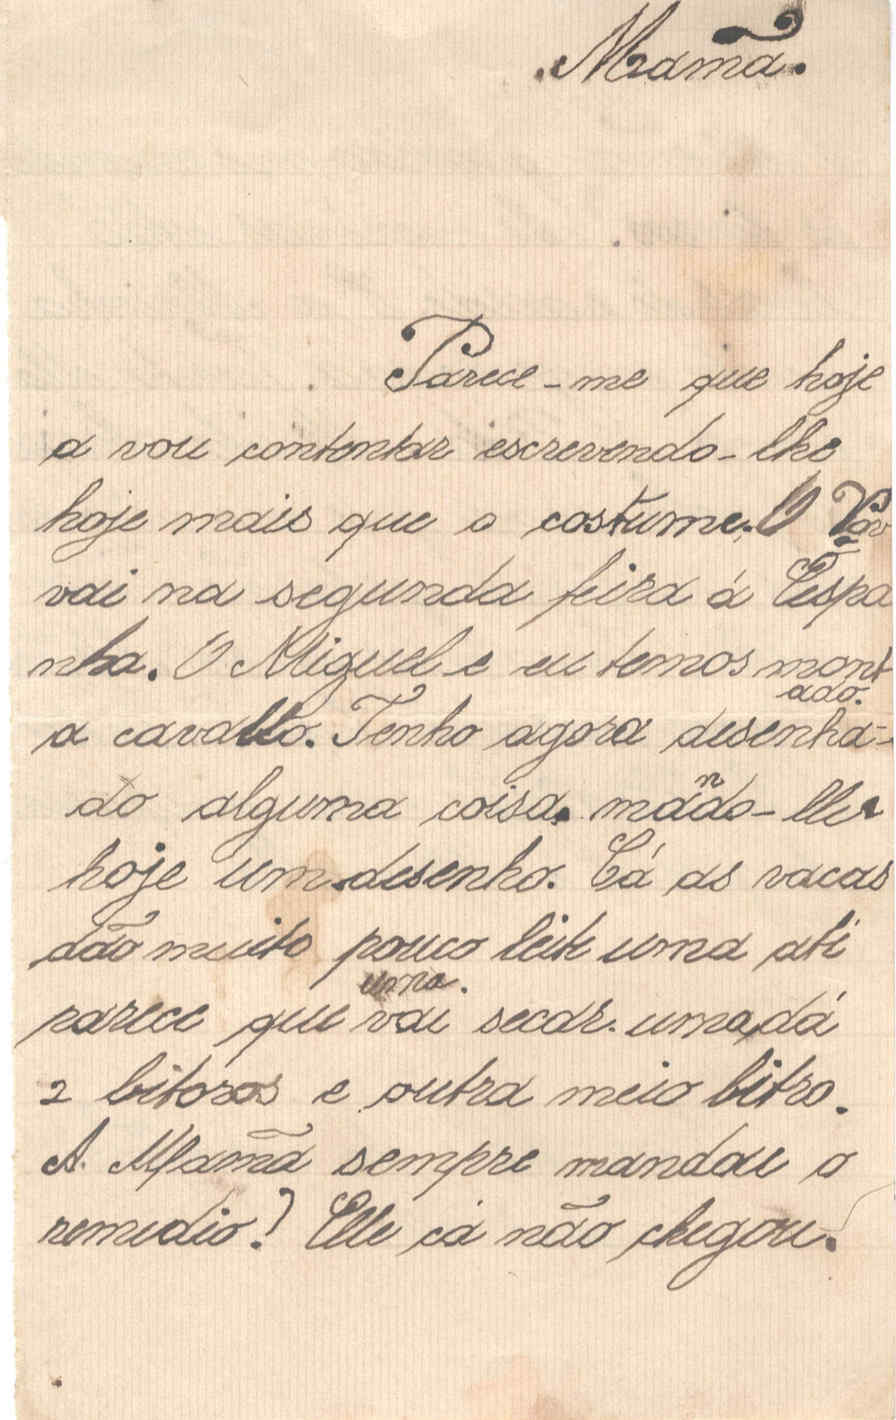 Mamã.
Parece-me que hoje
a vou contentar escrevendo-lhe
hoje mais que o costume. O Vôvô
vai na segunda feira á Espa
nha. O Miguel e eu temos mont
ado.
a cavallo. Tenho agora desenha-
do alguma coisa. mãndo-lhe
hoje um desenho. Cá as vacas
dão muito pouco leite uma até
parece que vai secar. uma dá
uma.
2 litoros e outra meio litro.
A Mamã sempre mandou o
remedio? Elle cá não chegou.